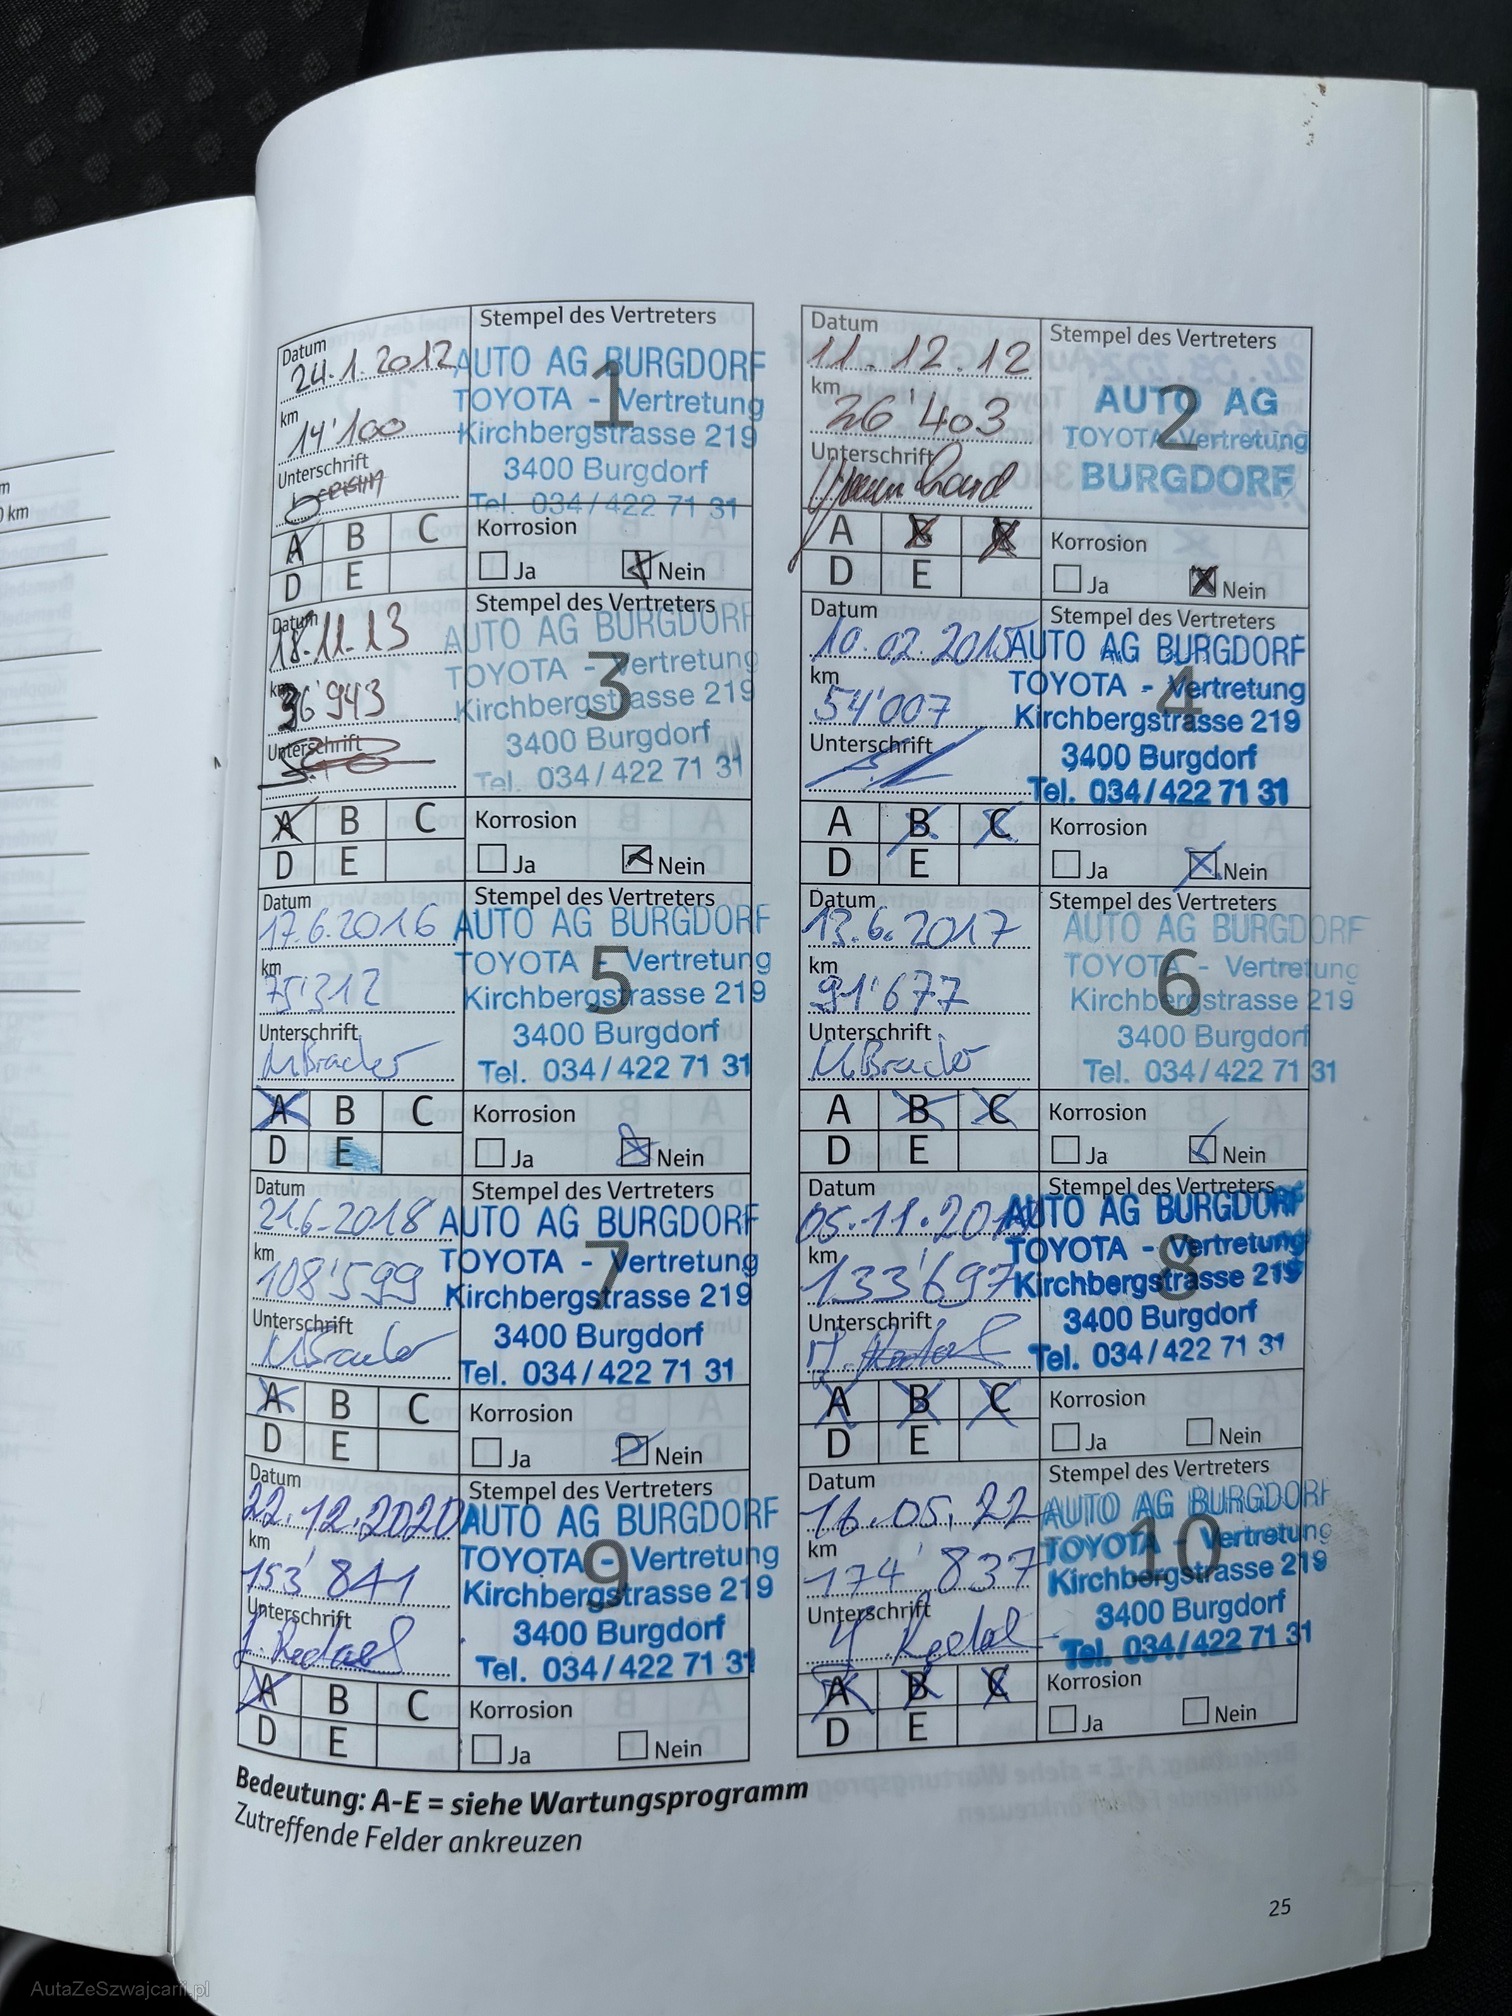 m
0 km
Datum
24.1.2012
km
14'100
Unterschrift
Stempel des Vertreters
AUTO AG BURGDORF
TOYOTA - Vertretung
Kirchbergstrasse 219
3400 Burgdorf
Tel. 034/422 71 31
1
A B C
D E
Korrosion
Ja Nein
Datum
11.12.12
km
26'403
Unterschrift
Stempel des Vertreters
AUTO AG
TOYOTA-Vertretung
BURGDORF
2
A B C
D E
Korrosion
Ja Nein
Datum
18.11.13
km
36'943
Unterschrift
Stempel des Vertreters
AUTO AG BURGDORF
TOYOTA - Vertretung
Kirchbergstrasse 219
3400 Burgdorf
Tel. 034/422 71 31
3
A B C
D E
Korrosion
Ja Nein
Datum
10.02.2015
km
54'007
Unterschrift
Stempel des Vertreters
AUTO AG BURGDORF
TOYOTA - Vertretung
Kirchbergstrasse 219
3400 Burgdorf
Tel. 034/422 71 31
4
A B C
D E
Korrosion
Ja Nein
Datum
17.6.2016
km
75'312
Unterschrift
Stempel des Vertreters
AUTO AG BURGDORF
TOYOTA - Vertretung
Kirchbergstrasse 219
3400 Burgdorf
Tel. 034/422 71 31
5
A B C
D E
Korrosion
Ja Nein
Datum
13.6.2017
km
91'677
Unterschrift
Stempel des Vertreters
AUTO AG BURGDORF
TOYOTA - Vertretung
Kirchbergstrasse 219
3400 Burgdorf
Tel. 034/422 71 31
6
A B C
D E
Korrosion
Ja Nein
Datum
21.6.2018
km
108'599
Unterschrift
Stempel des Vertreters
AUTO AG BURGDORF
TOYOTA - Vertretung
Kirchbergstrasse 219
3400 Burgdorf
Tel. 034/422 71 31
7
A B C
D E
Korrosion
Ja Nein
Datum
km
133'697
Unterschrift
Stempel des Vertreters
AUTO AG BURGDORF
TOYOTA - Vertretung
Kirchbergstrasse 219
3400 Burgdorf
Tel. 034/422 71 31
8
A B C
D E
Korrosion
Ja Nein
Datum
22.12.2020
km
153'841
Unterschrift
Stempel des Vertreters
AUTO AG BURGDORF
TOYOTA - Vertretung
Kirchbergstrasse 219
3400 Burgdorf
Tel. 034/422 71 31
9
A B C
D E
Korrosion
Ja Nein
Datum
16.05.22
km
174'837
Unterschrift
Stempel des Vertreters
AUTO AG BURGDORF
TOYOTA - Vertretung
Kirchbergstrasse 219
3400 Burgdorf
Tel. 034/422 71 31
10
A B C
D E
Korrosion
Ja Nein
Bedeutung: A-E = siehe Wartungsprogramm
Zutreffende Felder ankreuzen
25
AutaZeSzwajcarii.pl